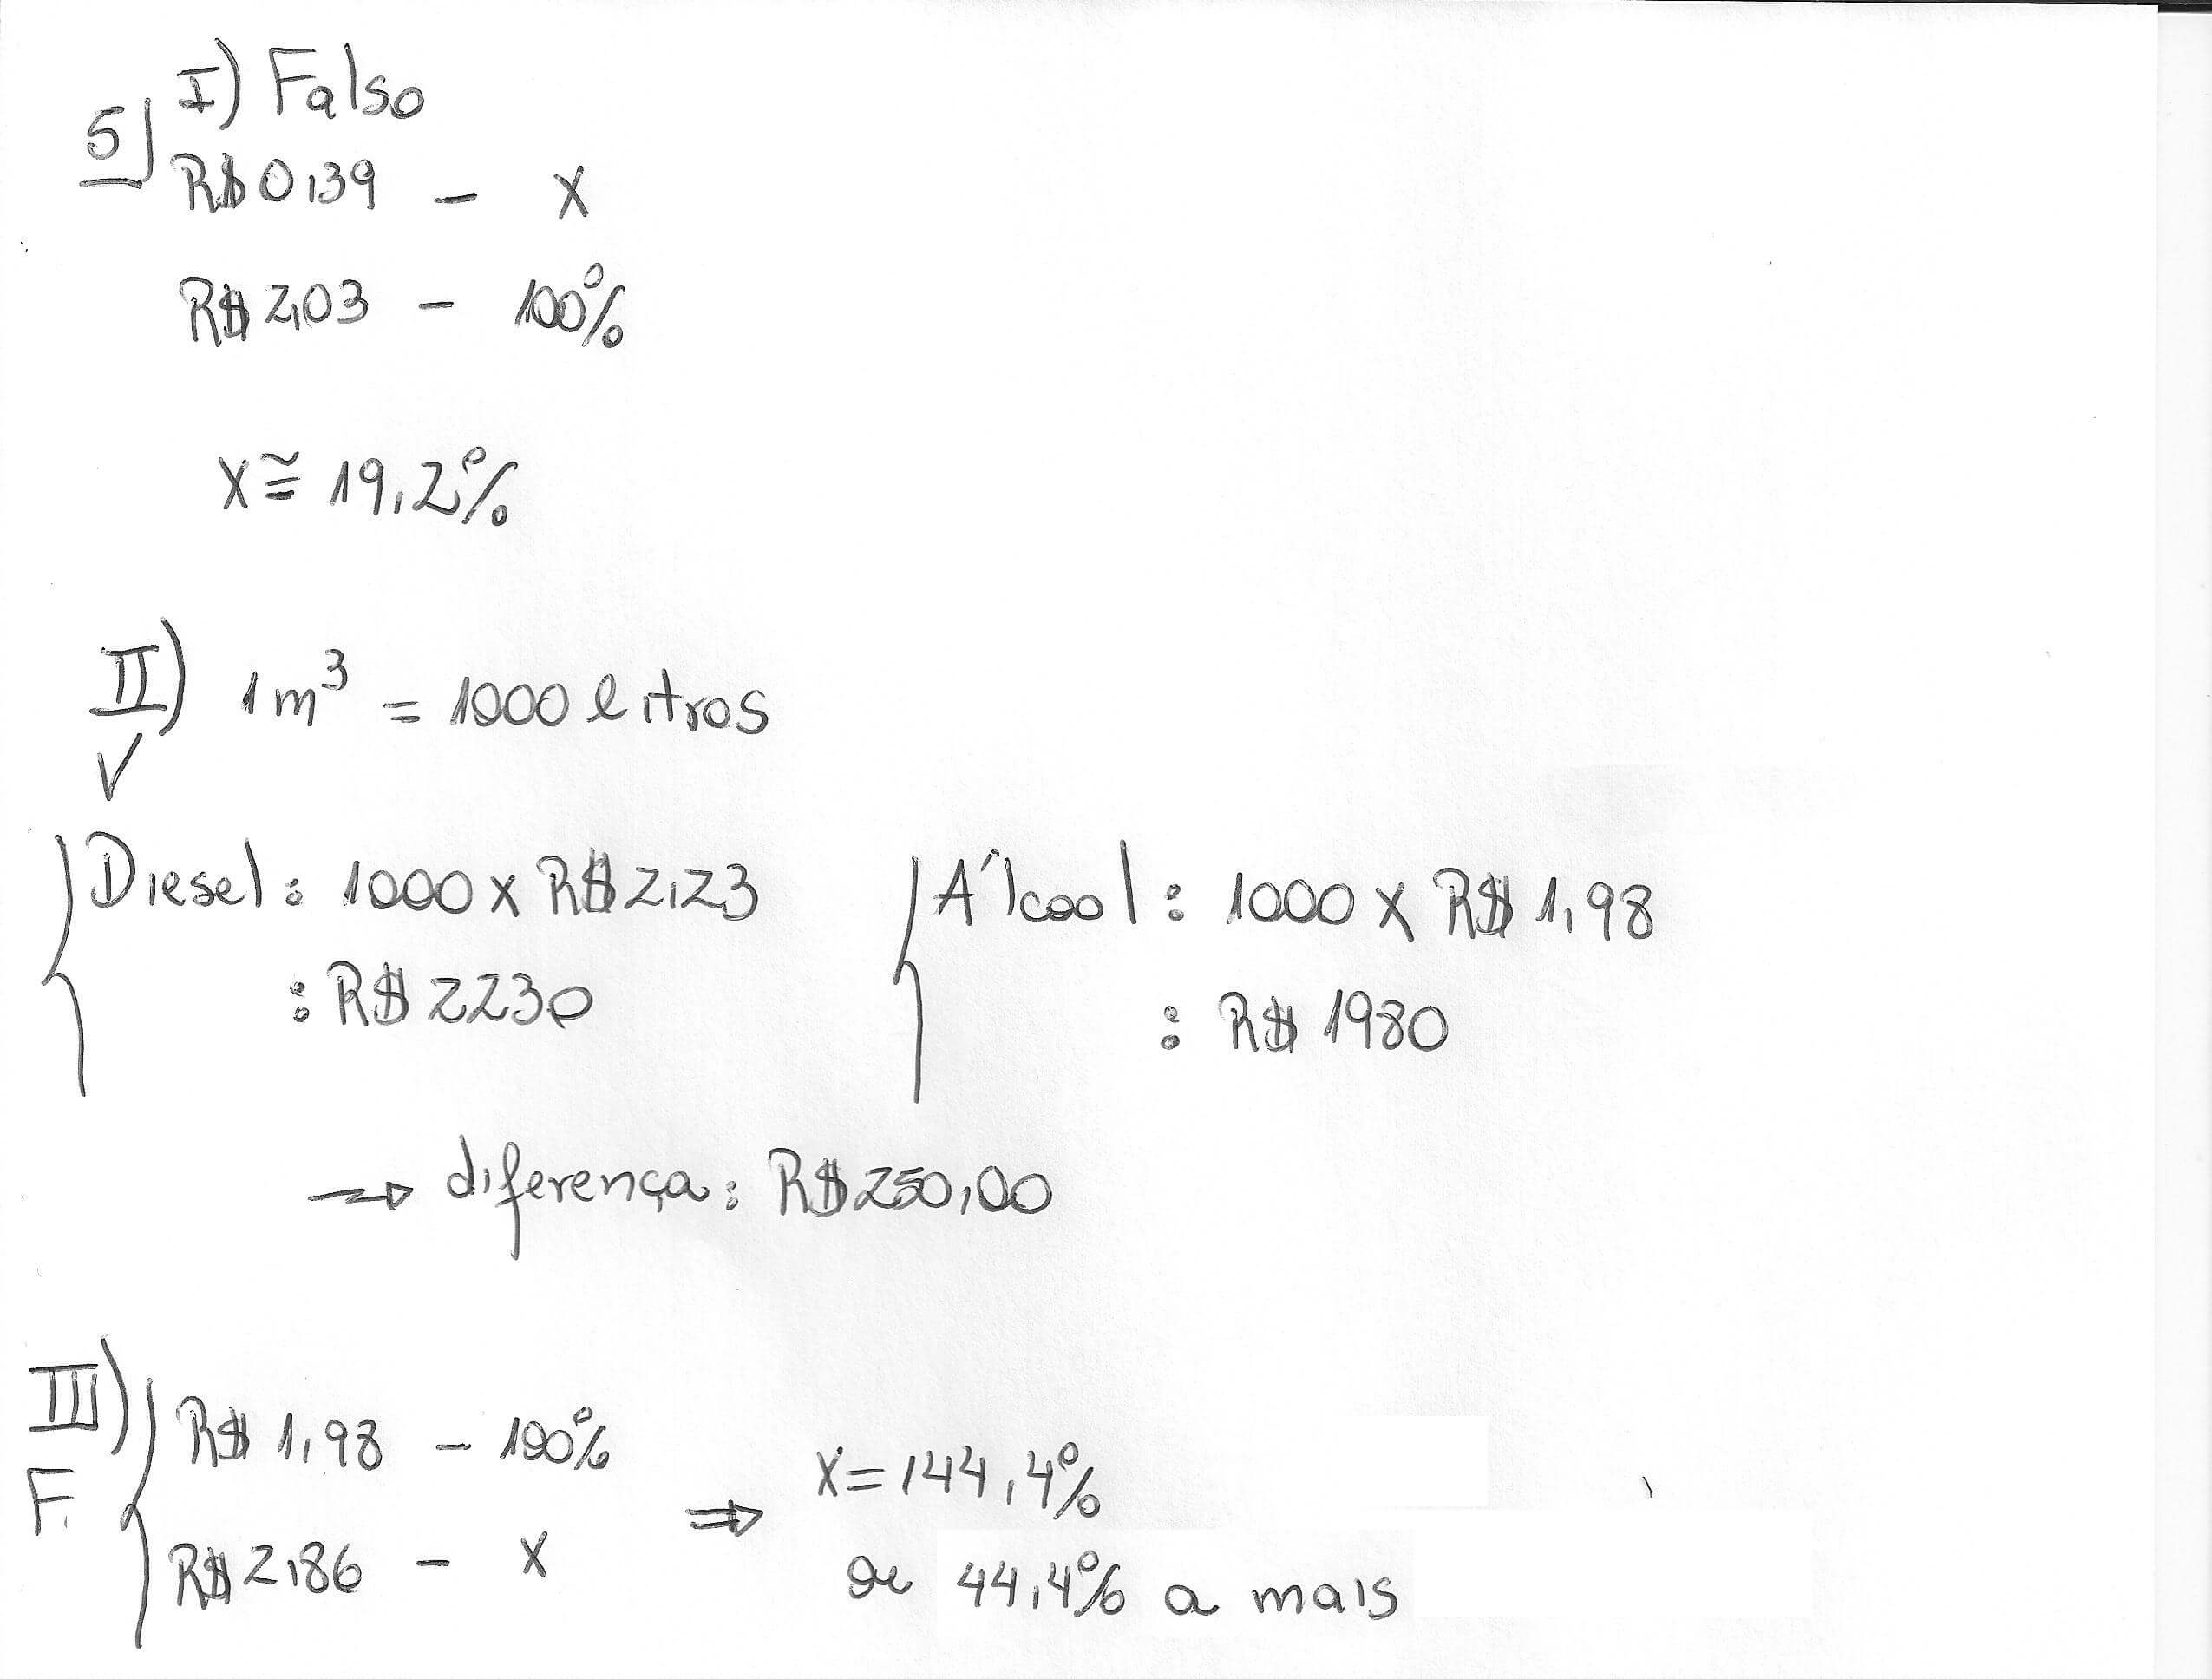 5) I) Falso
R$ 0,39 - X
R$ 2,03 - 100%
X ≅ 19,2%
II) 1m³ = 1000 litros
V
Diesel: 1000 x R$ 2,23
: R$ 2230
Álcool: 1000 x R$ 1,98
: R$ 1980
→ diferença: R$ 250,00
III) R$ 1,98 - 100%
F. R$ 2,86 - X
⇒ X = 144,4%
ou 44,4% a mais